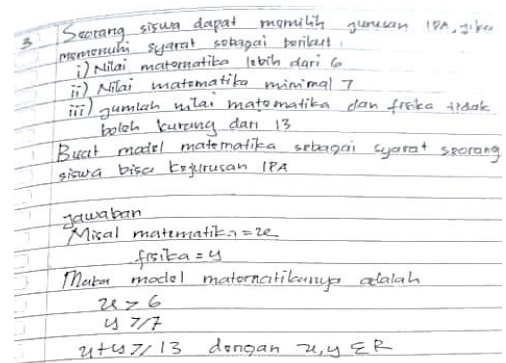 3 Seorang siswa dapat memilih jurusan IPA, jika
memenuhi syarat sebagai berikut.
i) Nilai matematika lebih dari 6
ii) Nilai matematika minimal 7
iii) jumlah nilai matematika dan fisika tidak
boleh kurang dari 13
Buat model matematika sebagai syarat seorang
siswa bisa kejurusan IPA
Jawaban
Misal matematika = x
fisika = y
Maka model matematikanya adalah
x > 6
y ≥ 7
x + y ≥ 13 dengan x, y ∈ R